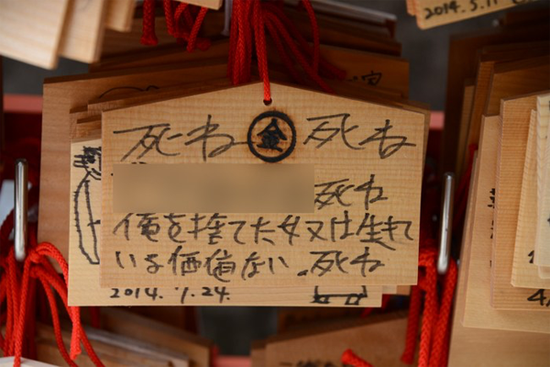 2014.5.11
死ね 金 死ね
死ね
俺を捨てた奴は生きて
いる価値ない。死ね
2014.1.24.